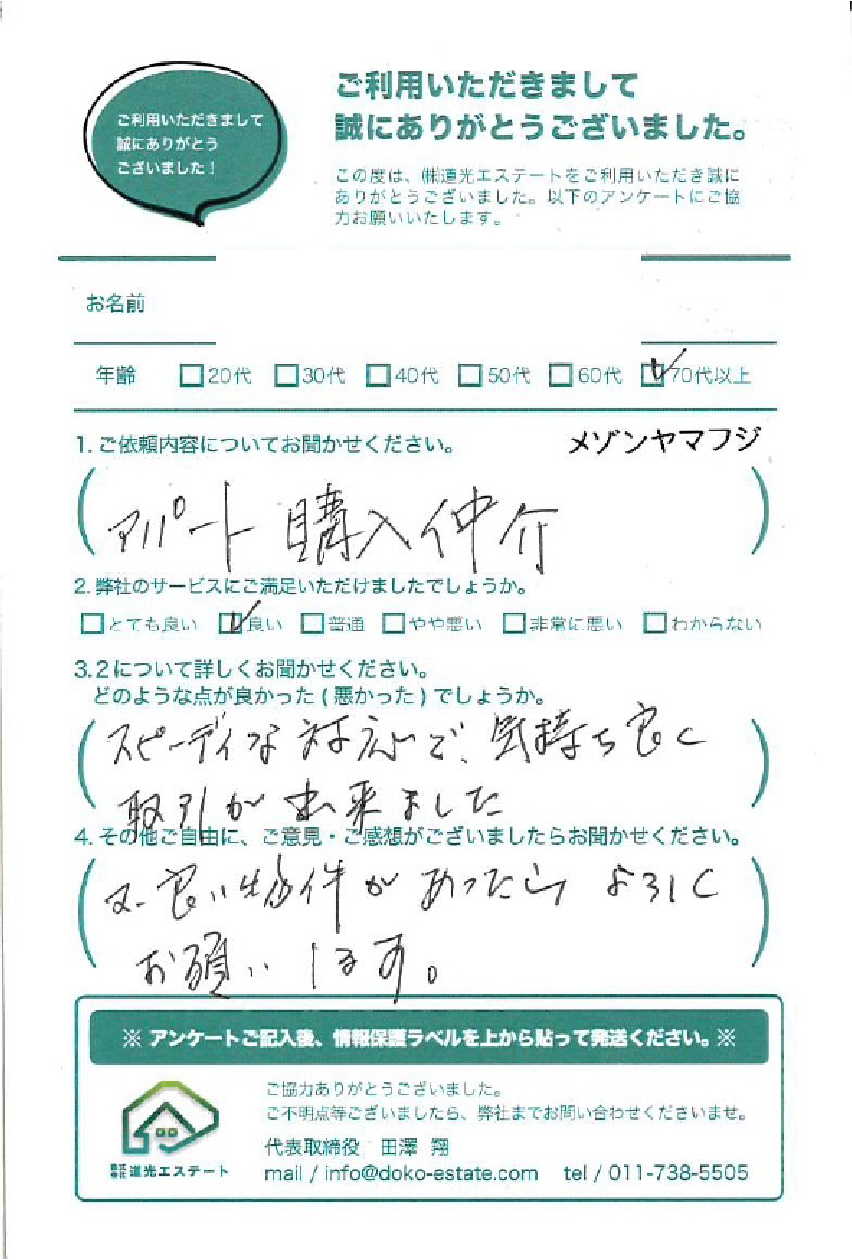 ご利用いただきまして
誠にありがとう
ございました！
ご利用いただきまして
誠にありがとうございました。
この度は、㈱道光エステートをご利用いただき誠に
ありがとうございました。以下のアンケートにご協
力お願いいたします。
お名前
年齢 □20代 □30代 □40代 □50代 □60代 ☑70代以上
1. ご依頼内容についてお聞かせください。 メゾンヤマフジ
アパート購入仲介
2. 弊社のサービスにご満足いただけましたでしょうか。
□とても良い ☑良い □普通 □やや悪い □非常に悪い □わからない
3. 2について詳しくお聞かせください。
どのような点が良かった(悪かった)でしょうか。
スピーディな対応で、気持ち良く
取引が出来ました
4. その他ご自由に、ご意見・ご感想がございましたらお聞かせください。
又、良い物件があったらよろしく
お願いします。
※ アンケートご記入後、情報保護ラベルを上から貼って発送ください。※
ご協力ありがとうございました。
ご不明点等ございましたら、弊社までお問い合わせくださいませ。
代表取締役 田澤 翔
株式会社道光エステート
mail / info@doko-estate.com tel / 011-738-5505